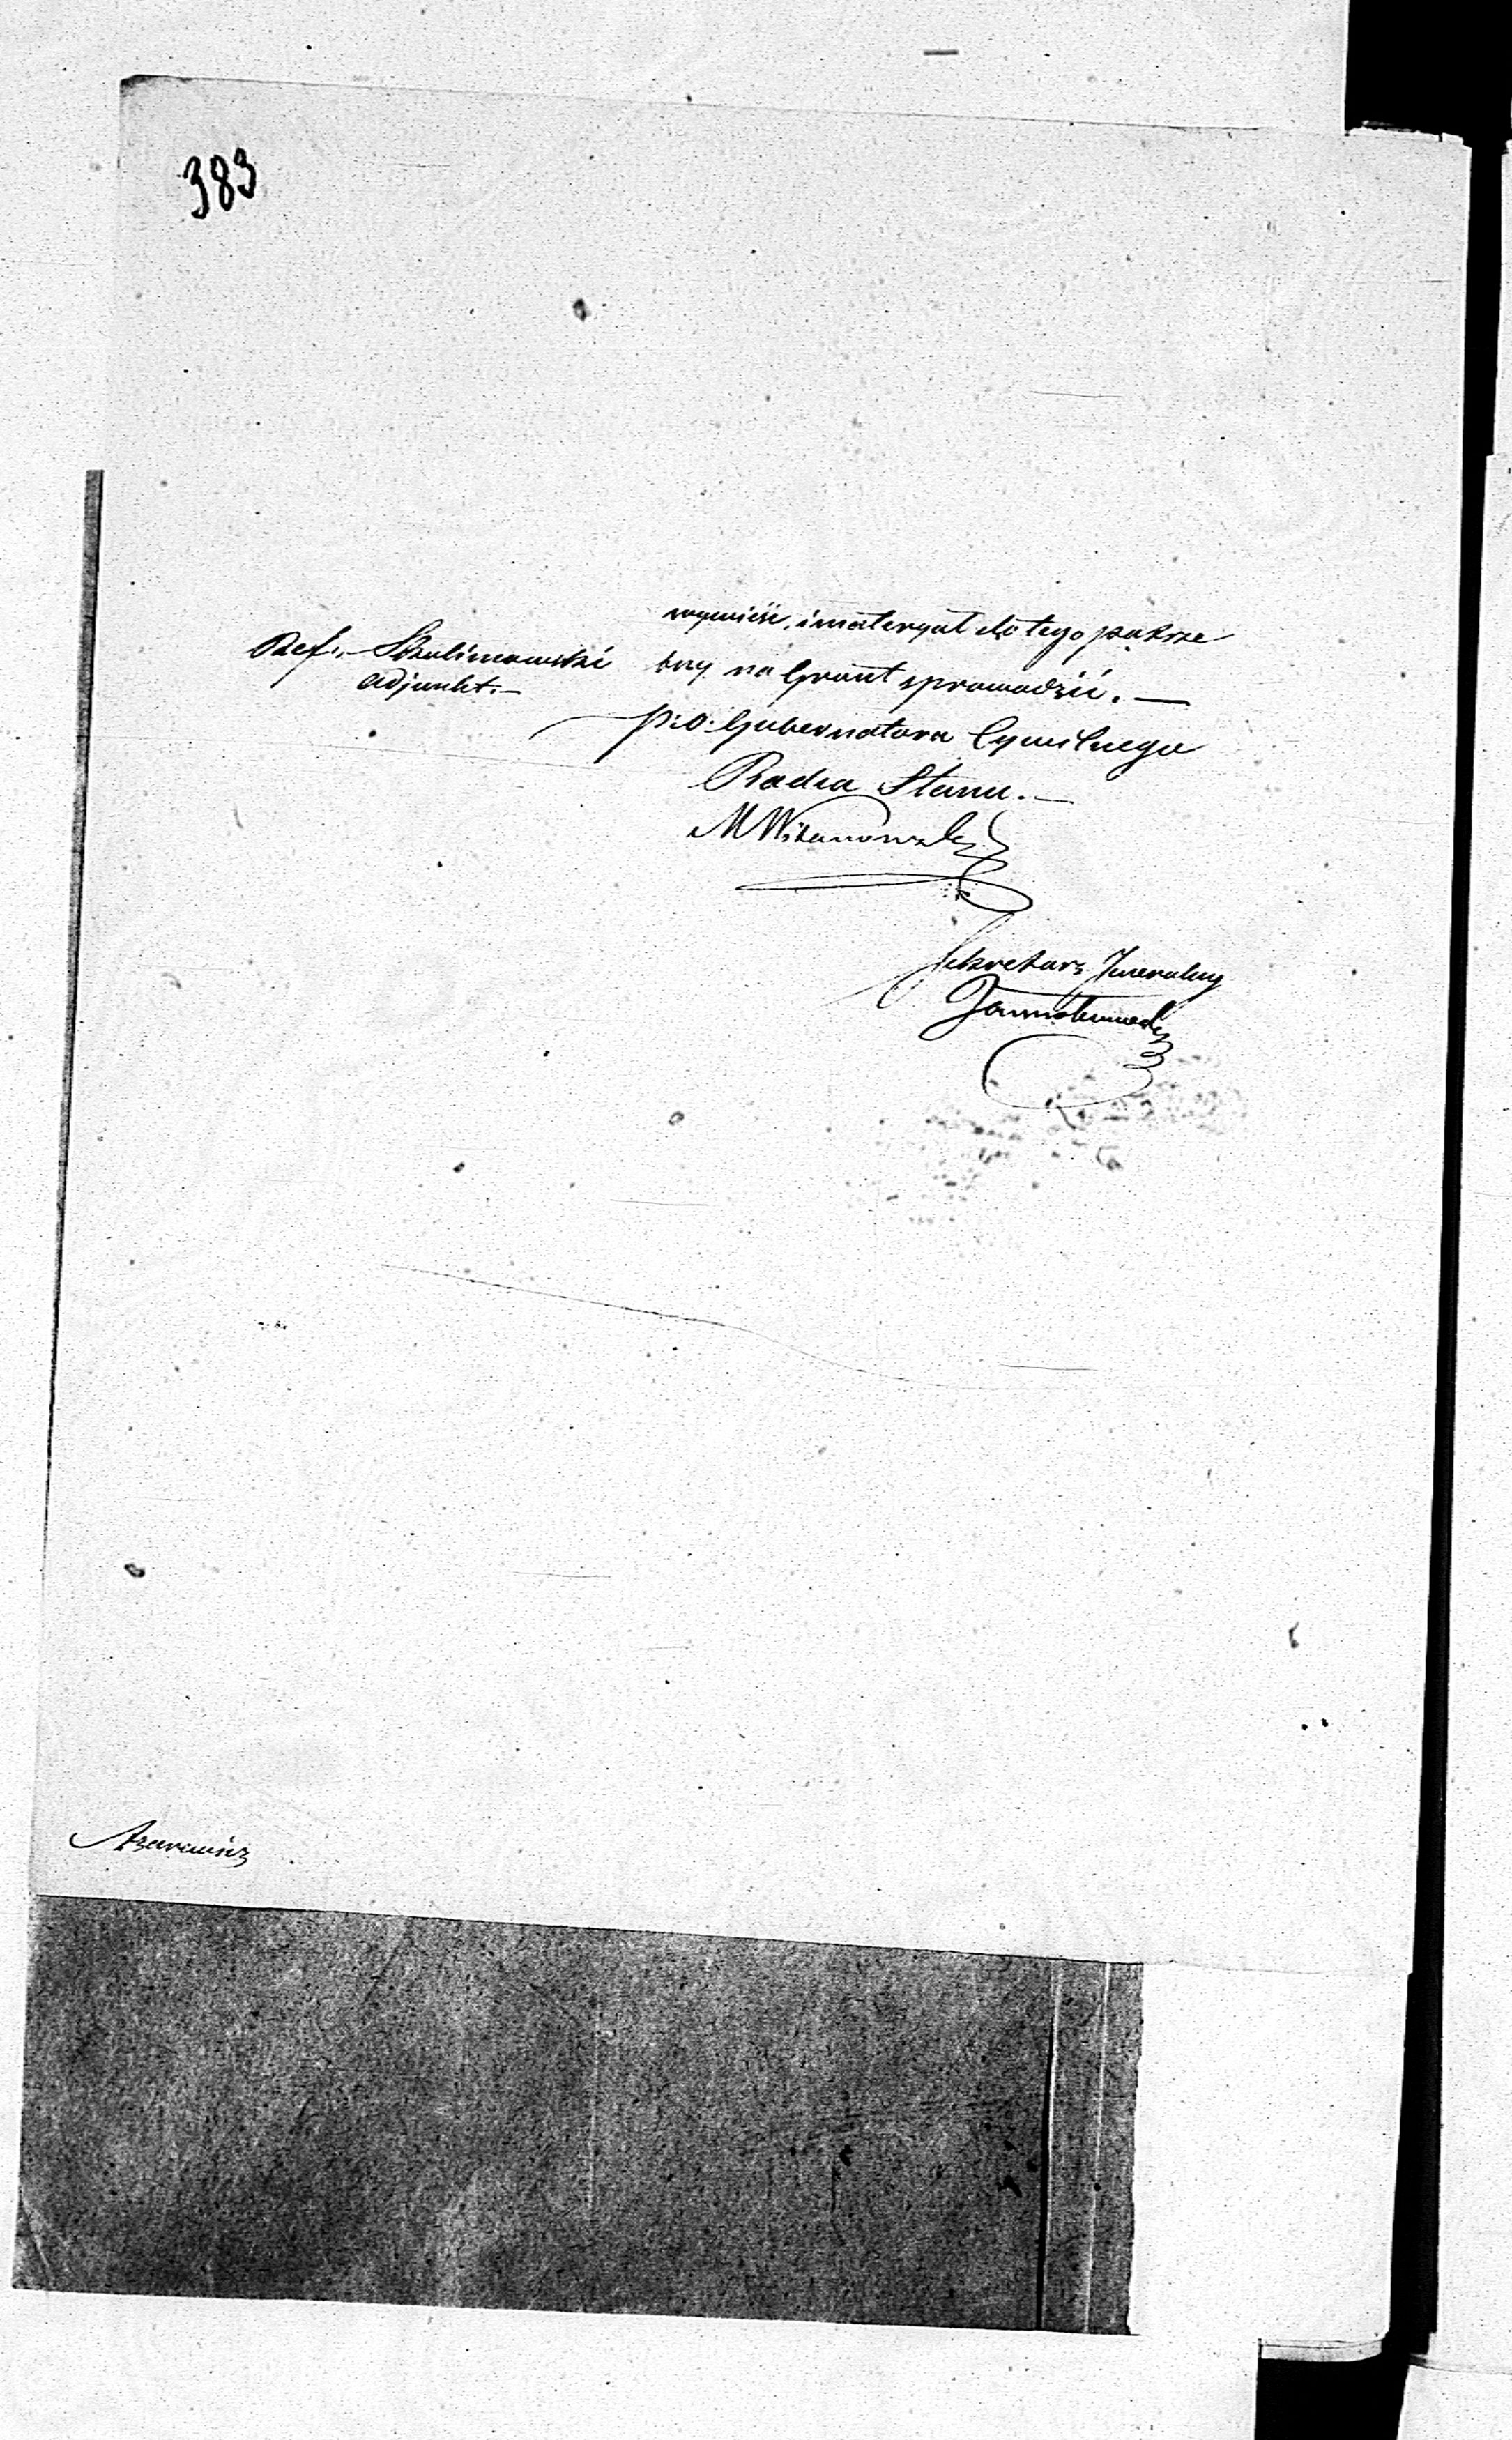 383
wynieść, i materyał do tego potrze
bny na Grunt sprowadzić. —
Ref. Skulimowski
Adjunkt. —
p. o. Gubernatora Cywilnego
Radca Stanu. —
M Witanowski
Sekretarz Jeneralny